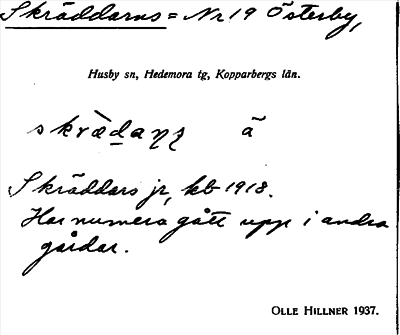 Skräddarns = Nr 19 Österby,
Husby sn, Hedemora tg, Kopparbergs län.
skrädaṇz ä
Skräddars jr, kb 1918.
Har numera gått upp i andra
gårdar.
OLLE HILLNER 1937.